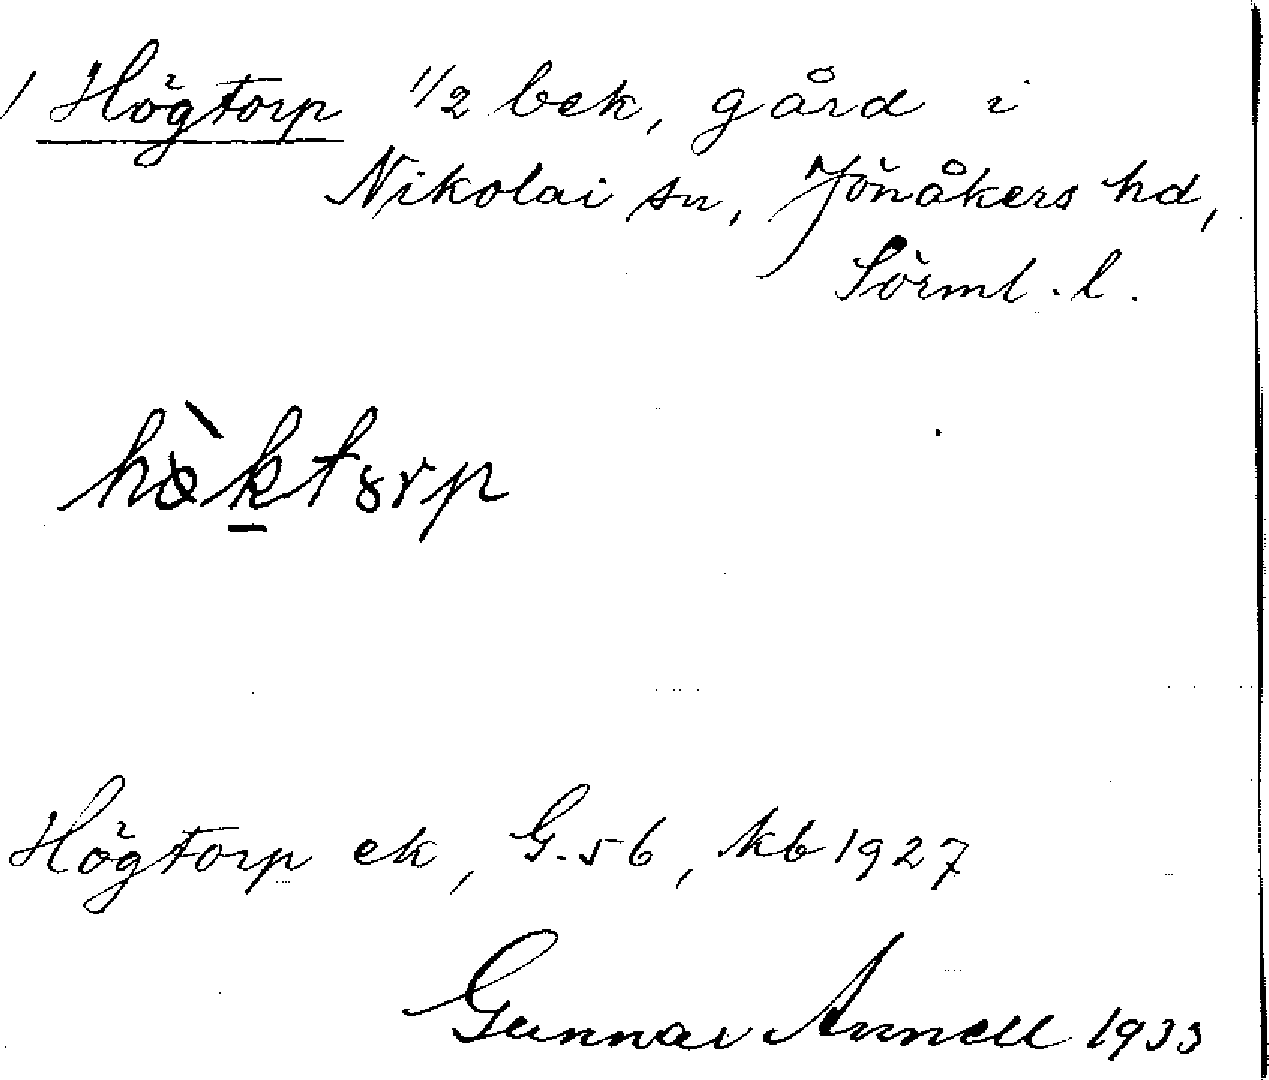 / Högtorp 1/2 bek, gård i
Nikolai sn, Jönåkers hd,
Sörml. l.
hö̀ktorp
Högtorp ek, G.56, kb 1927
Gunnar Annell 1933